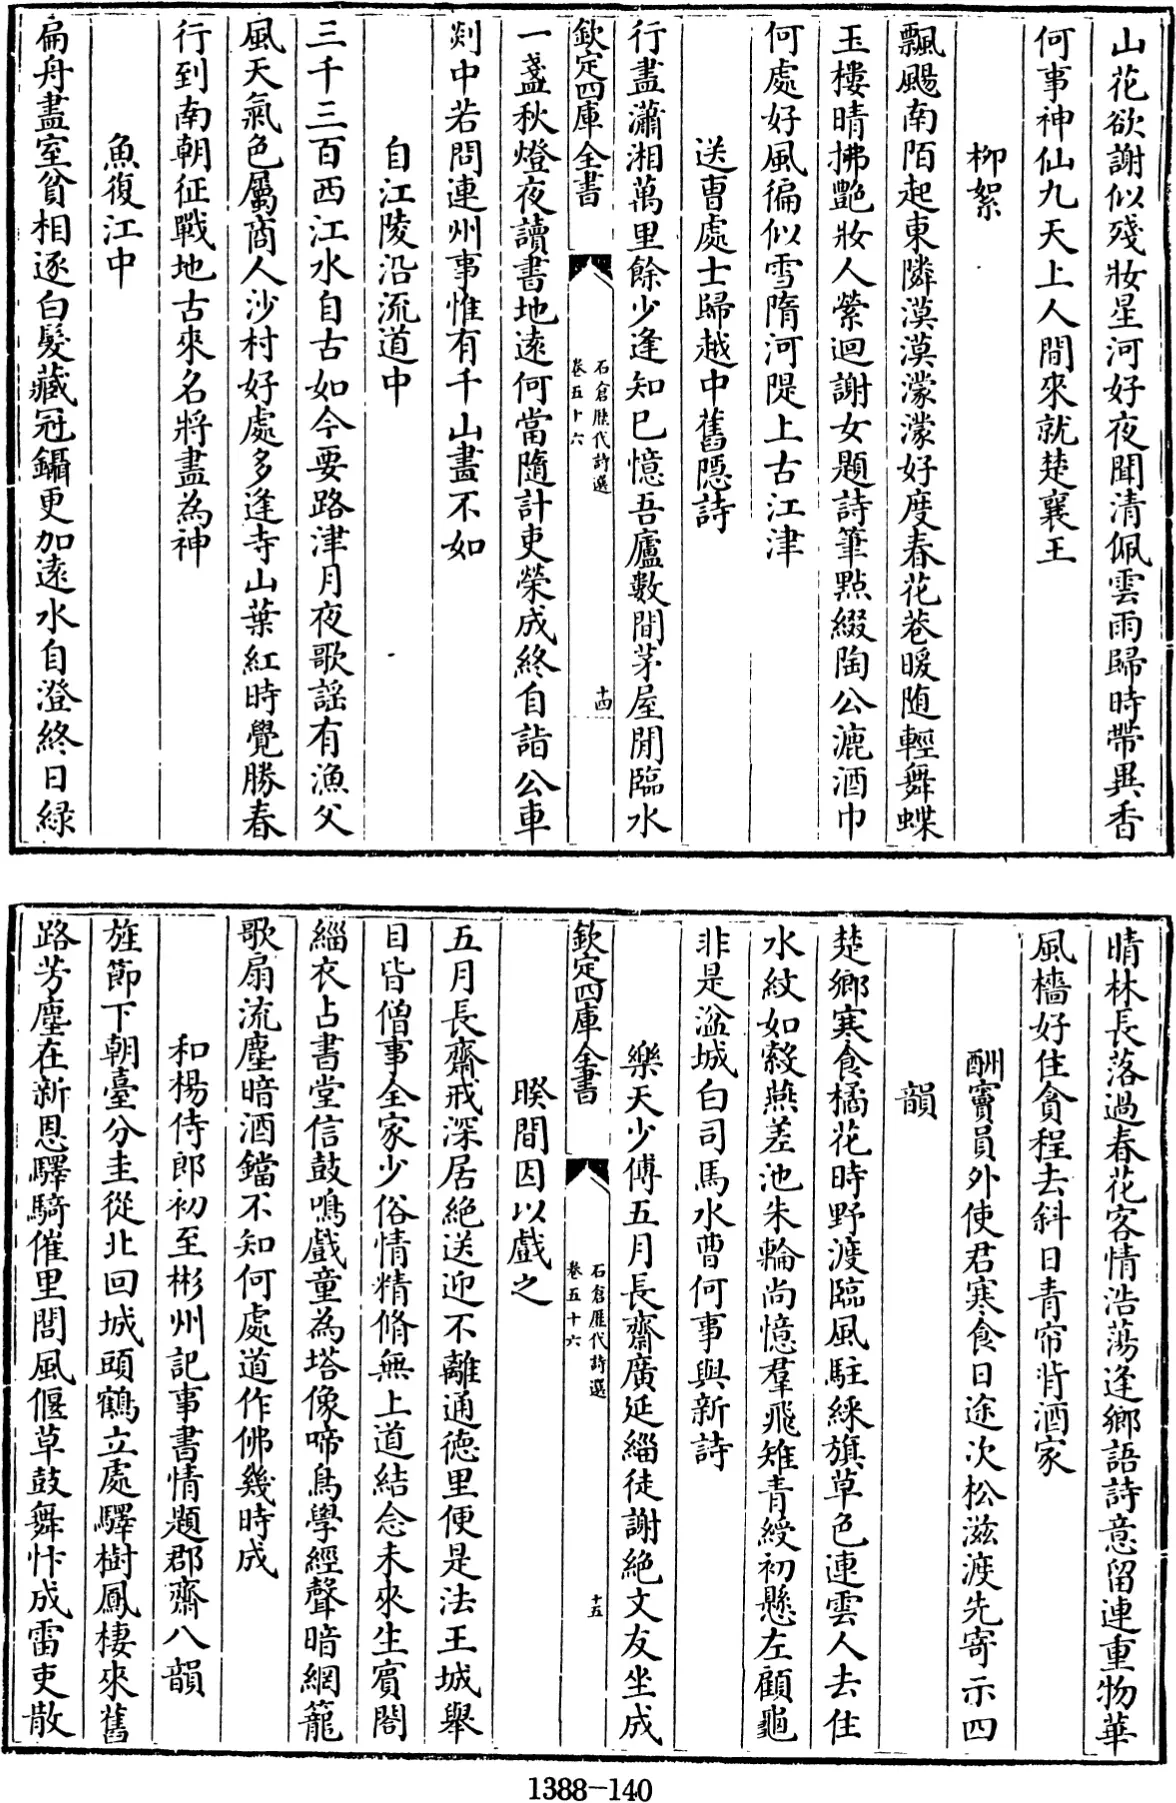 山花欲謝似殘妝星河好夜聞清佩雲雨歸時帶異香
何事神仙九天上人間來就楚襄王
柳絮
飄颺南陌起東隣漠漠濛濛好度春花巷暖随輕舞蝶
玉樓晴拂艶妝人縈迴謝女題詩筆點綴陶公漉酒巾
何處好風徧似雪隋河隄上古江津
送曺處士歸越中舊隱詩
行盡瀟湘萬里餘少逢知已憶吾廬數間茅屋閒臨水
欽定四庫全書
石倉歷代詩選
卷五十六
十四
一盞秋燈夜讀書地遠何當隨計吏榮成終自詣公車
剡中若問連州事惟有千山畫不如
自江陵沿流道中
三千三百西江水自古如今要路津月夜歌謡有漁父
風天氣色屬商人沙村好處多逢寺山葉紅時覺勝春
行到南朝征戰地古來名將盡為神
魚復江中
扁舟盡室貧相逐白髮藏冠鑷更加遠水自澄終日緑
晴林長落過春花客情浩蕩逢鄉語詩意留連重物華
風檣好住貪程去斜日青帘背酒家
酬竇員外使君寒食日途次松滋渡先寄示四
韻
楚鄉寒食橘花時野渡臨風駐綵旗草色連雲人去住
水紋如縠燕差池朱輪尚憶羣飛雉青綬初懸左顧龜
非是湓城白司馬水曹何事與新詩
樂天少傅五月長齋廣延緇徒謝絶文友坐成
欽定四庫全書
石倉歷代詩選
卷五十六
十五
暌間因以戲之
五月長齋戒深居絶送迎不離通德里便是法王城舉
目皆僧事全家少俗情精脩無上道結念未來生賓閣
緇衣占書堂信鼓鳴戲童為塔像啼鳥學經聲暗網籠
歌扇流塵暗酒鐺不知何處道作佛幾時成
和楊侍郎初至彬州記事書情題郡齋八韻
旌節下朝臺分圭從北回城頭鶴立處驛樹鳳棲來舊
路芳塵在新恩驛騎催里閭風偃草鼓舞忭成雷吏散
1388-140